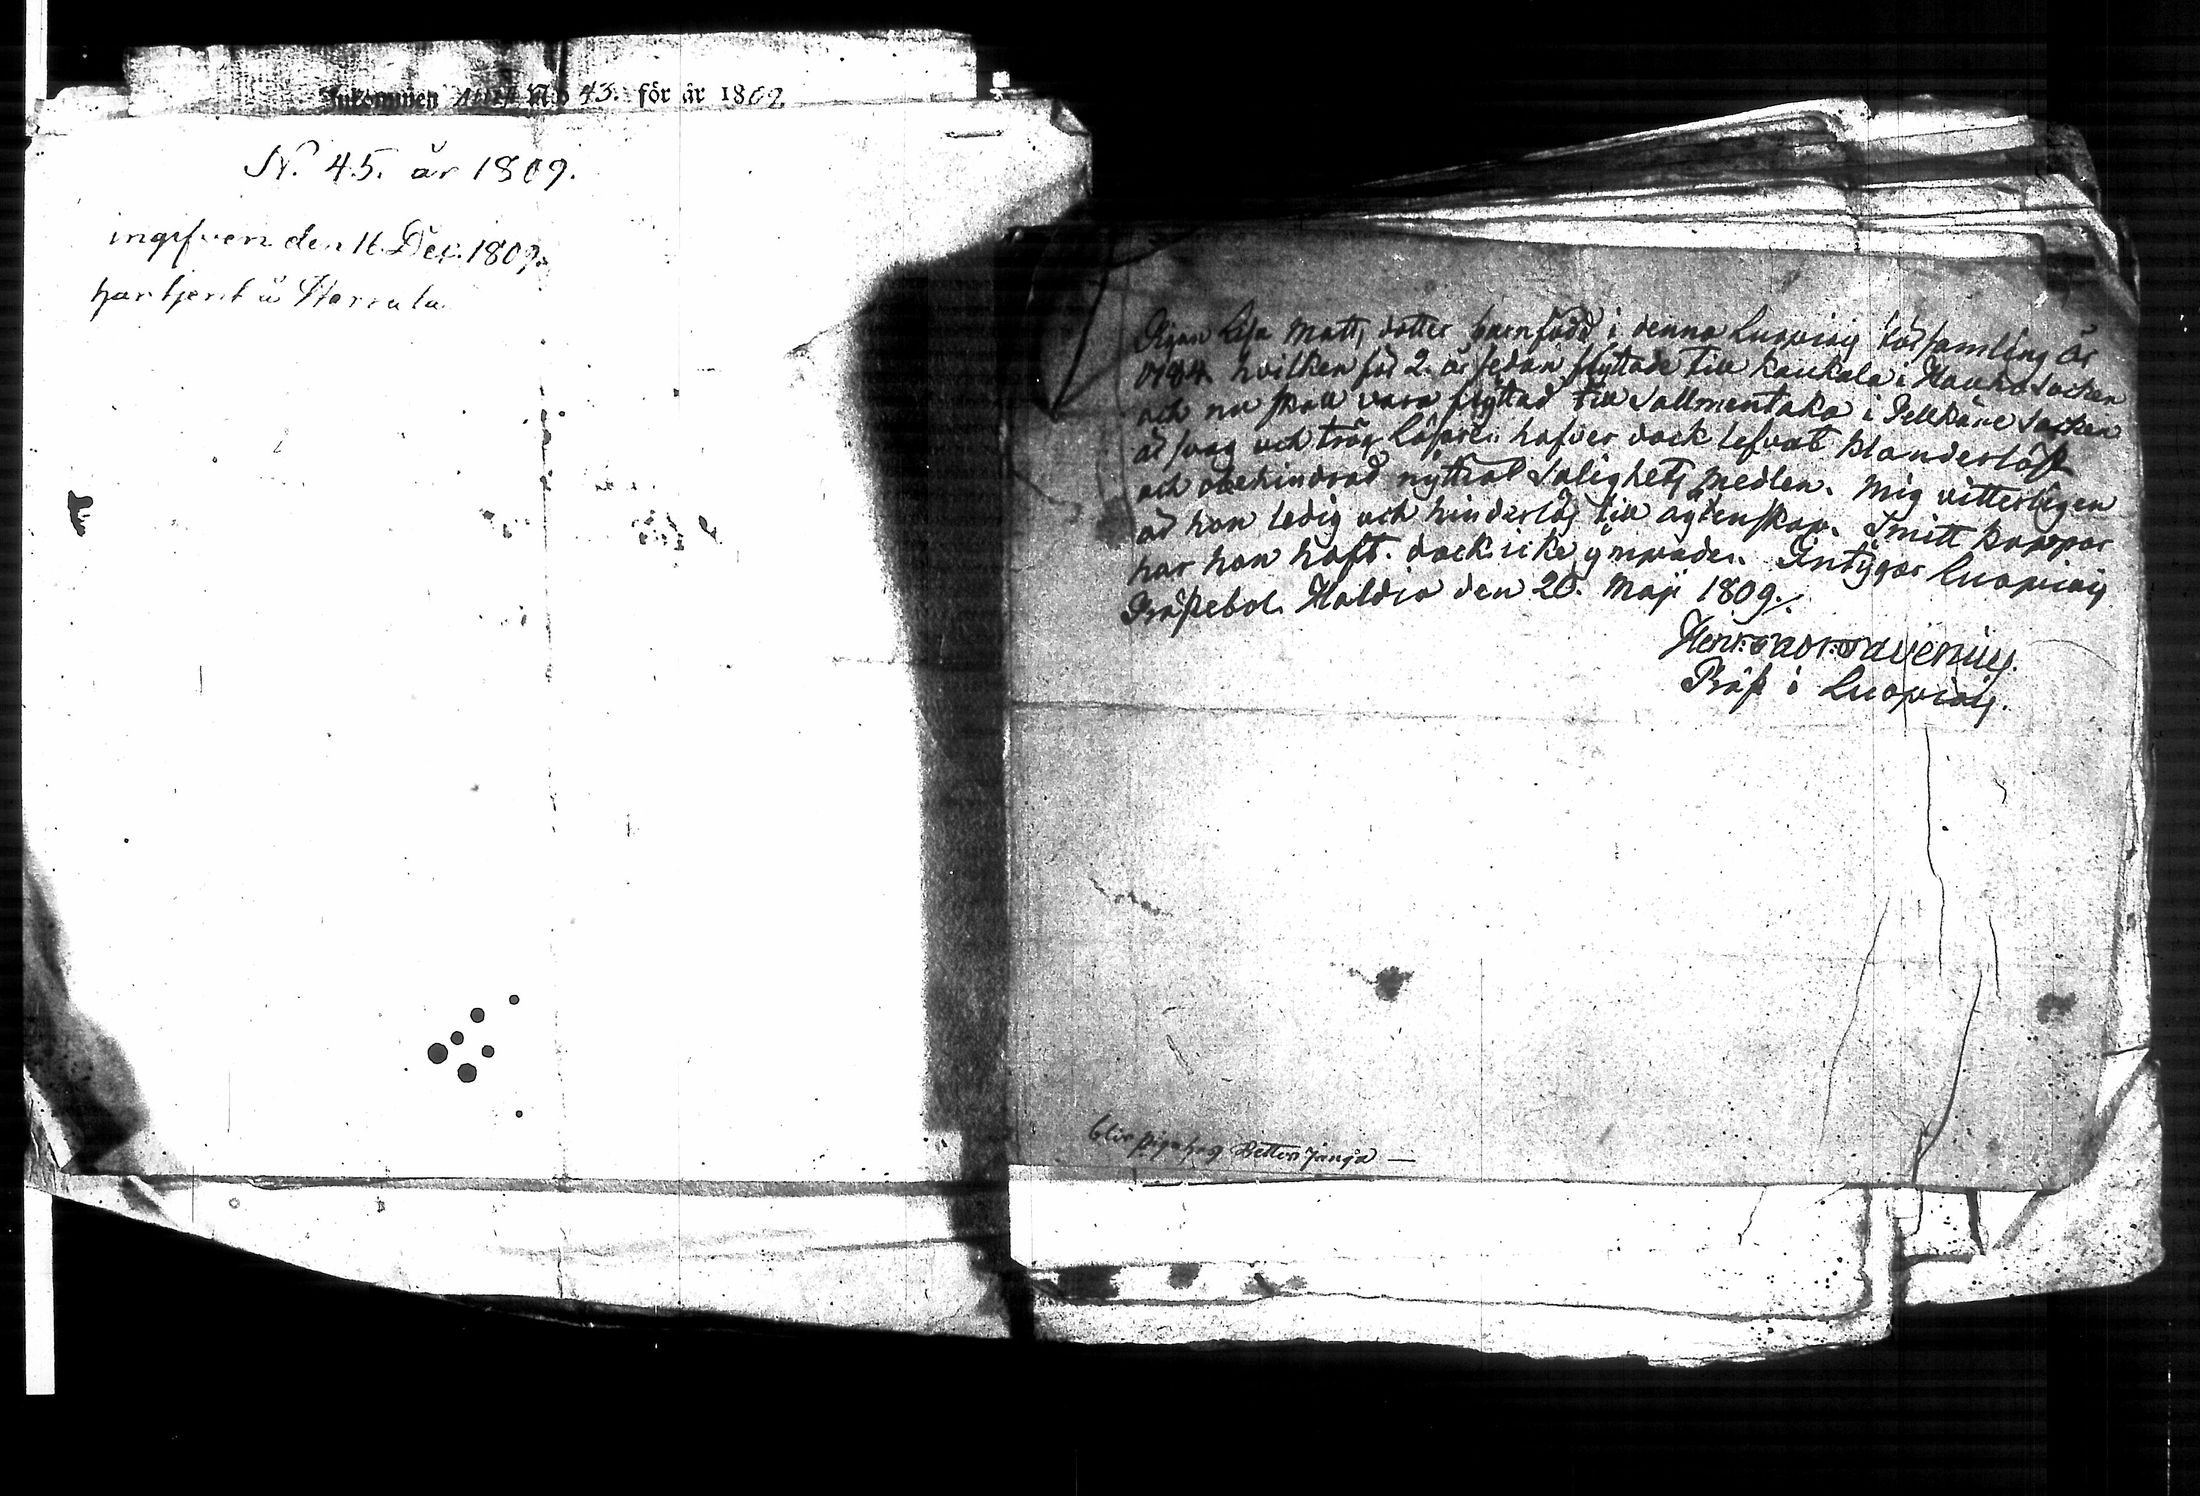 Inkommen Attest No 43. för år 1809.
N. 45. år 1809.
ingifven den 16. Dec. 1809.
har tjent i Harrala
Pigan Lisa Matts dotter, barnfödd i denna Luopiois församling år
1784. hvilken för 2. år sedan flyttade till Kaukala i Hauho Socken
och nu skall vara flyttad till Salmentaka i Pelkäne Socken
är svag och trög läsare. hafver dock lefvat klanderlöst
och obehindrad nyttiat Salighets medlen. Mig vitterligen
är hon ledig och hinderlös till ägtenskap. Smitt koppor
har hon haft. dock icke ympade. Intygar Luopiois
Prästebol Haldia den 20. Maji 1809.
Präst i Luopiois.
blir piga hos Petter Janga —